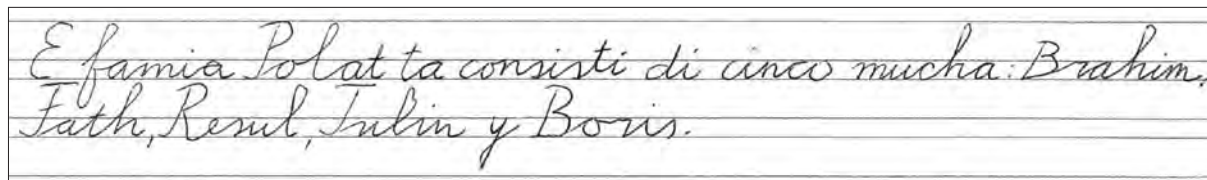 E famia Polat ta consisti di cinco mucha: Brahim,
Fath, Resul, Tulin y Boris.